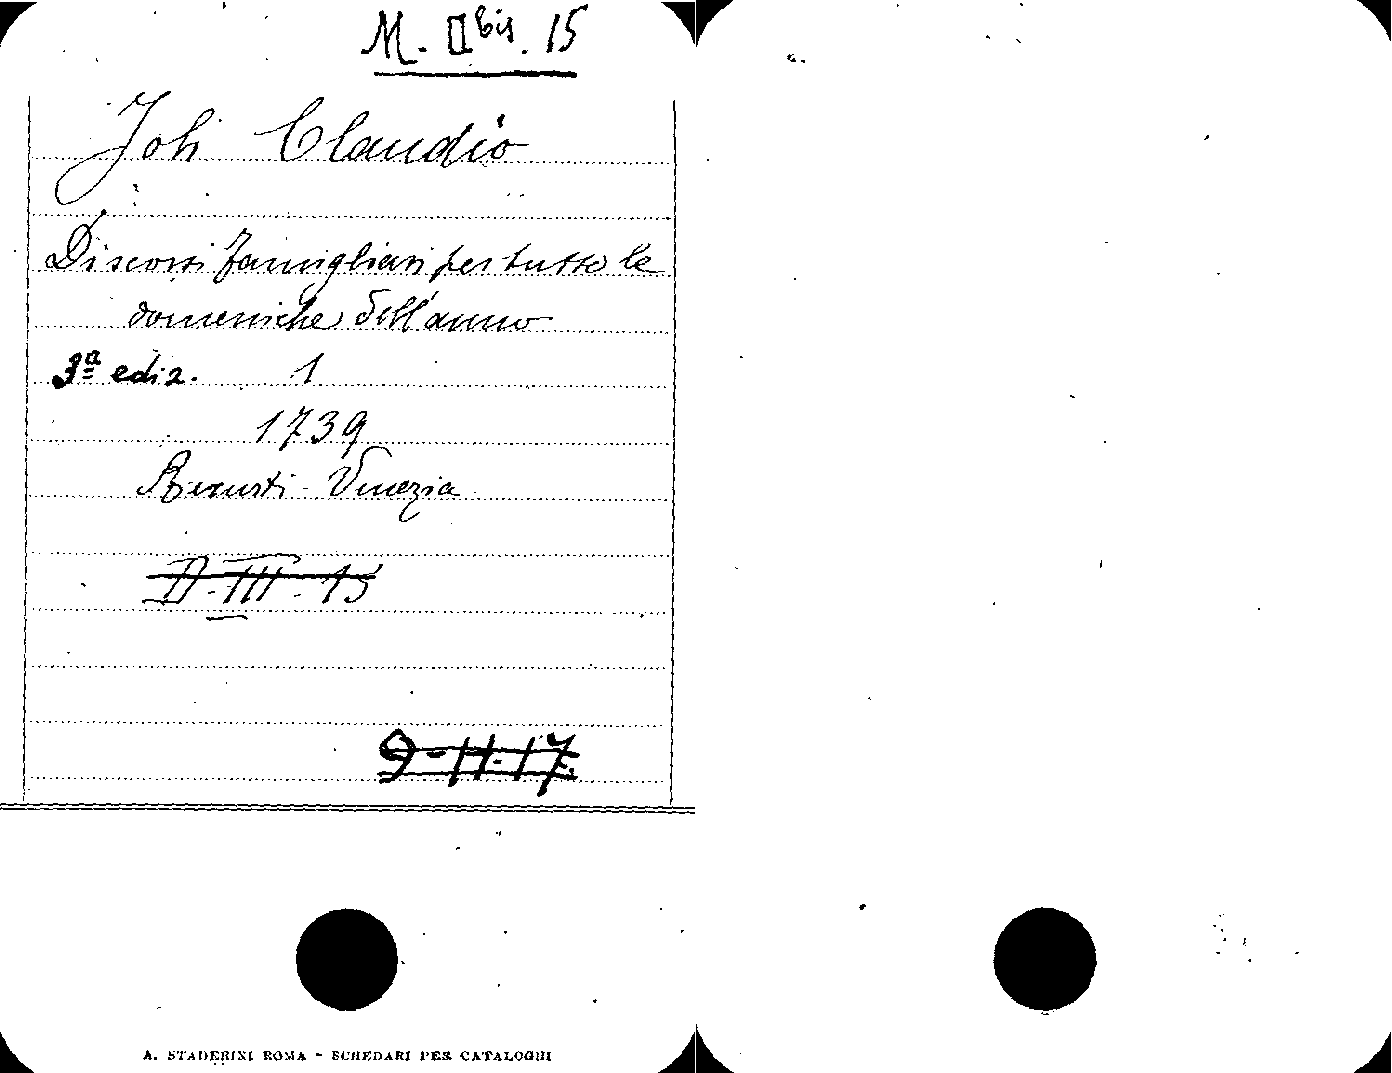 M. II bis. 15
Joli Claudio
Discorsi famigliari per tutte le
domeniche dell'anno
3ª ediz. 1
1739
Venezia
II-III-15
9-11-17.
A. STADERINI ROMA - SCHEDARI PER CATALOGHI